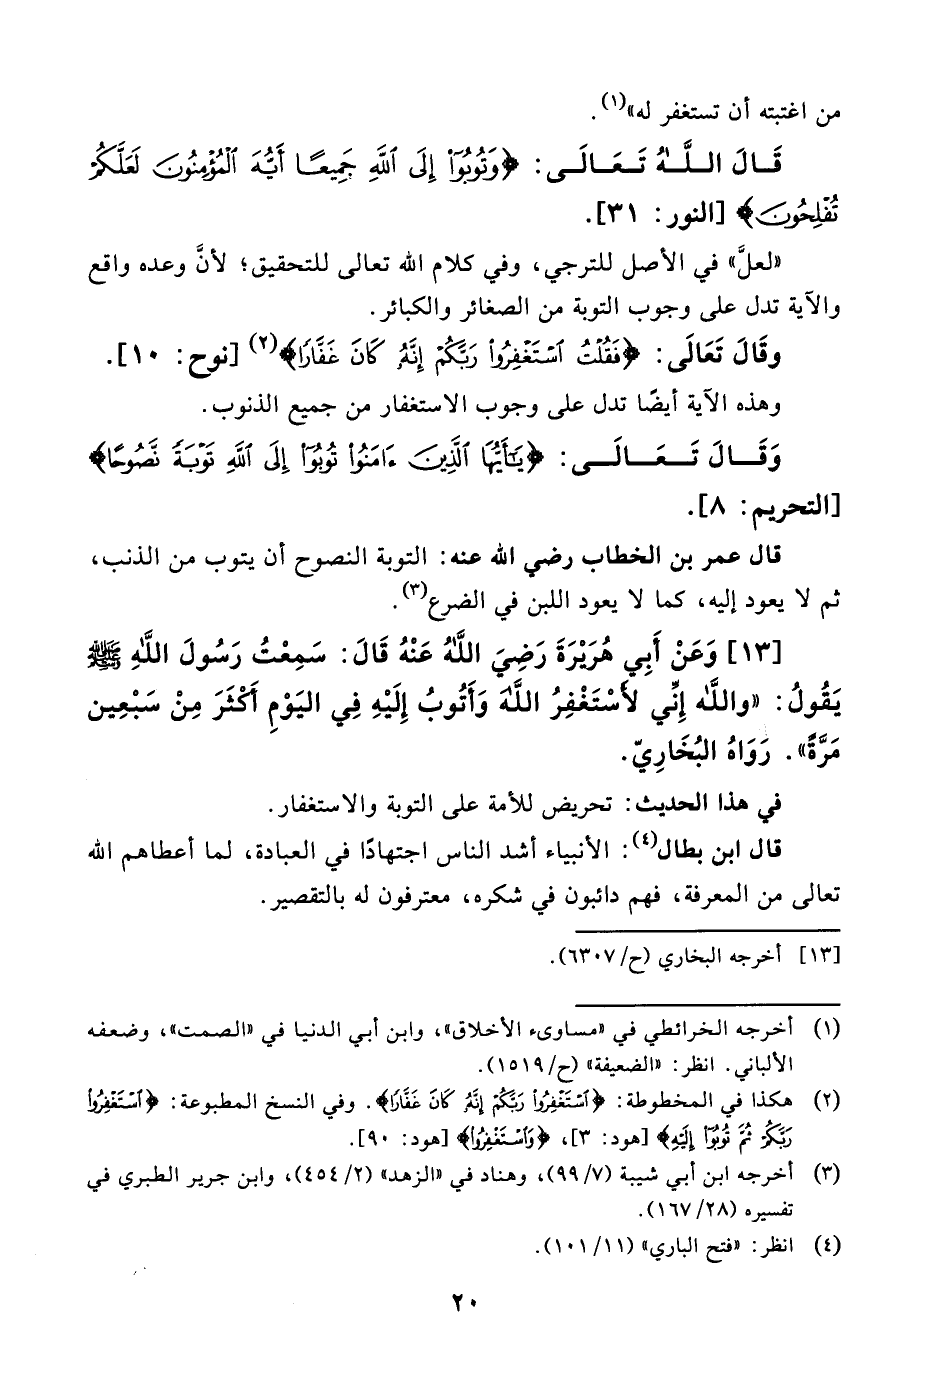 من اغتبته أن تستغفر له»(١).
قَالَ اللَّهُ تَعَالَى: ﴿وَتُوبُوٓاْ إِلَى ٱللَّهِ جَمِيعًا أَيُّهَ ٱلْمُؤْمِنُونَ لَعَلَّكُمْ
تُفْلِحُونَ﴾ [النور: ٣١].
«لعلَّ» في الأصل للترجي، وفي كلام الله تعالى للتحقيق؛ لأنَّ وعده واقع
والآية تدل على وجوب التوبة من الصغائر والكبائر.
وقَالَ تَعَالَى: ﴿فَقُلْتُ ٱسْتَغْفِرُواْ رَبَّكُمْ إِنَّهُۥ كَانَ غَفَّارًا﴾(٢) [نوح: ١٠].
وهذه الآية أيضًا تدل على وجوب الاستغفار من جميع الذنوب.
وَقَالَ تَعَالَى: ﴿يَٰٓأَيُّهَا ٱلَّذِينَ ءَامَنُواْ تُوبُوٓاْ إِلَى ٱللَّهِ تَوْبَةً نَّصُوحًا﴾
[التحريم: ٨].
قال عمر بن الخطاب رضي الله عنه: التوبة النصوح أن يتوب من الذنب،
ثم لا يعود إليه، كما لا يعود اللبن في الضرع(٣).
[١٣] وَعَنْ أَبِي هُرَيْرَةَ رَضِيَ اللَّهُ عَنْهُ قَالَ: سَمِعْتُ رَسُولَ اللَّهِ ﷺ
يَقُولُ: «واللَّه إِنِّي لأَسْتَغْفِرُ اللَّهَ وَأَتُوبُ إِلَيْهِ فِي اليَوْمِ أَكْثَرَ مِنْ سَبْعِين
مَرَّةً». رَوَاهُ البُخَارِيّ.
في هذا الحديث: تحريض للأمة على التوبة والاستغفار.
قال ابن بطال(٤): الأنبياء أشد الناس اجتهادًا في العبادة، لما أعطاهم الله
تعالى من المعرفة، فهم دائبون في شكره، معترفون له بالتقصير.
[١٣] أخرجه البخاري (ح/٦٣٠٧).
(١) أخرجه الخرائطي في «مساوىء الأخلاق»، وابن أبي الدنيا في «الصمت»، وضعفه
الألباني. انظر: «الضعيفة» (ح/١٥١٩).
(٢) هكذا في المخطوطة: ﴿ٱسْتَغْفِرُواْ رَبَّكُمْ إِنَّهُۥ كَانَ غَفَّارًا﴾. وفي النسخ المطبوعة: ﴿ٱسْتَغْفِرُواْ
رَبَّكُمْ ثُمَّ تُوبُوٓاْ إِلَيْهِ﴾ [هود: ٣]، ﴿وَٱسْتَغْفِرُواْ﴾ [هود: ٩٠].
(٣) أخرجه ابن أبي شيبة (٩٩/٧)، وهناد في «الزهد» (٤٥٤/٢)، وابن جرير الطبري في
تفسيره (١٦٧/٢٨).
(٤) انظر: «فتح الباري» (١٠١/١١).
٢٠